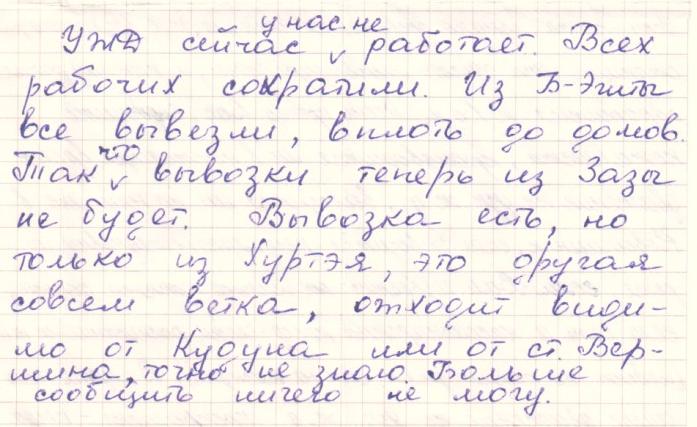 у нас не
УЖД сейчас работает. Всех
рабочих сократили. Из Б-Эгиты
все вывезли, вплоть до домов.
что
Так вывозки теперь из Зазы
не будет. Вывозка есть, но
только из Хуртэя, это другая
совсем ветка, отходит види-
мо от Кудуна или от ст. Вер-
шина, точно не знаю. Больше
сообщить ничего не могу.